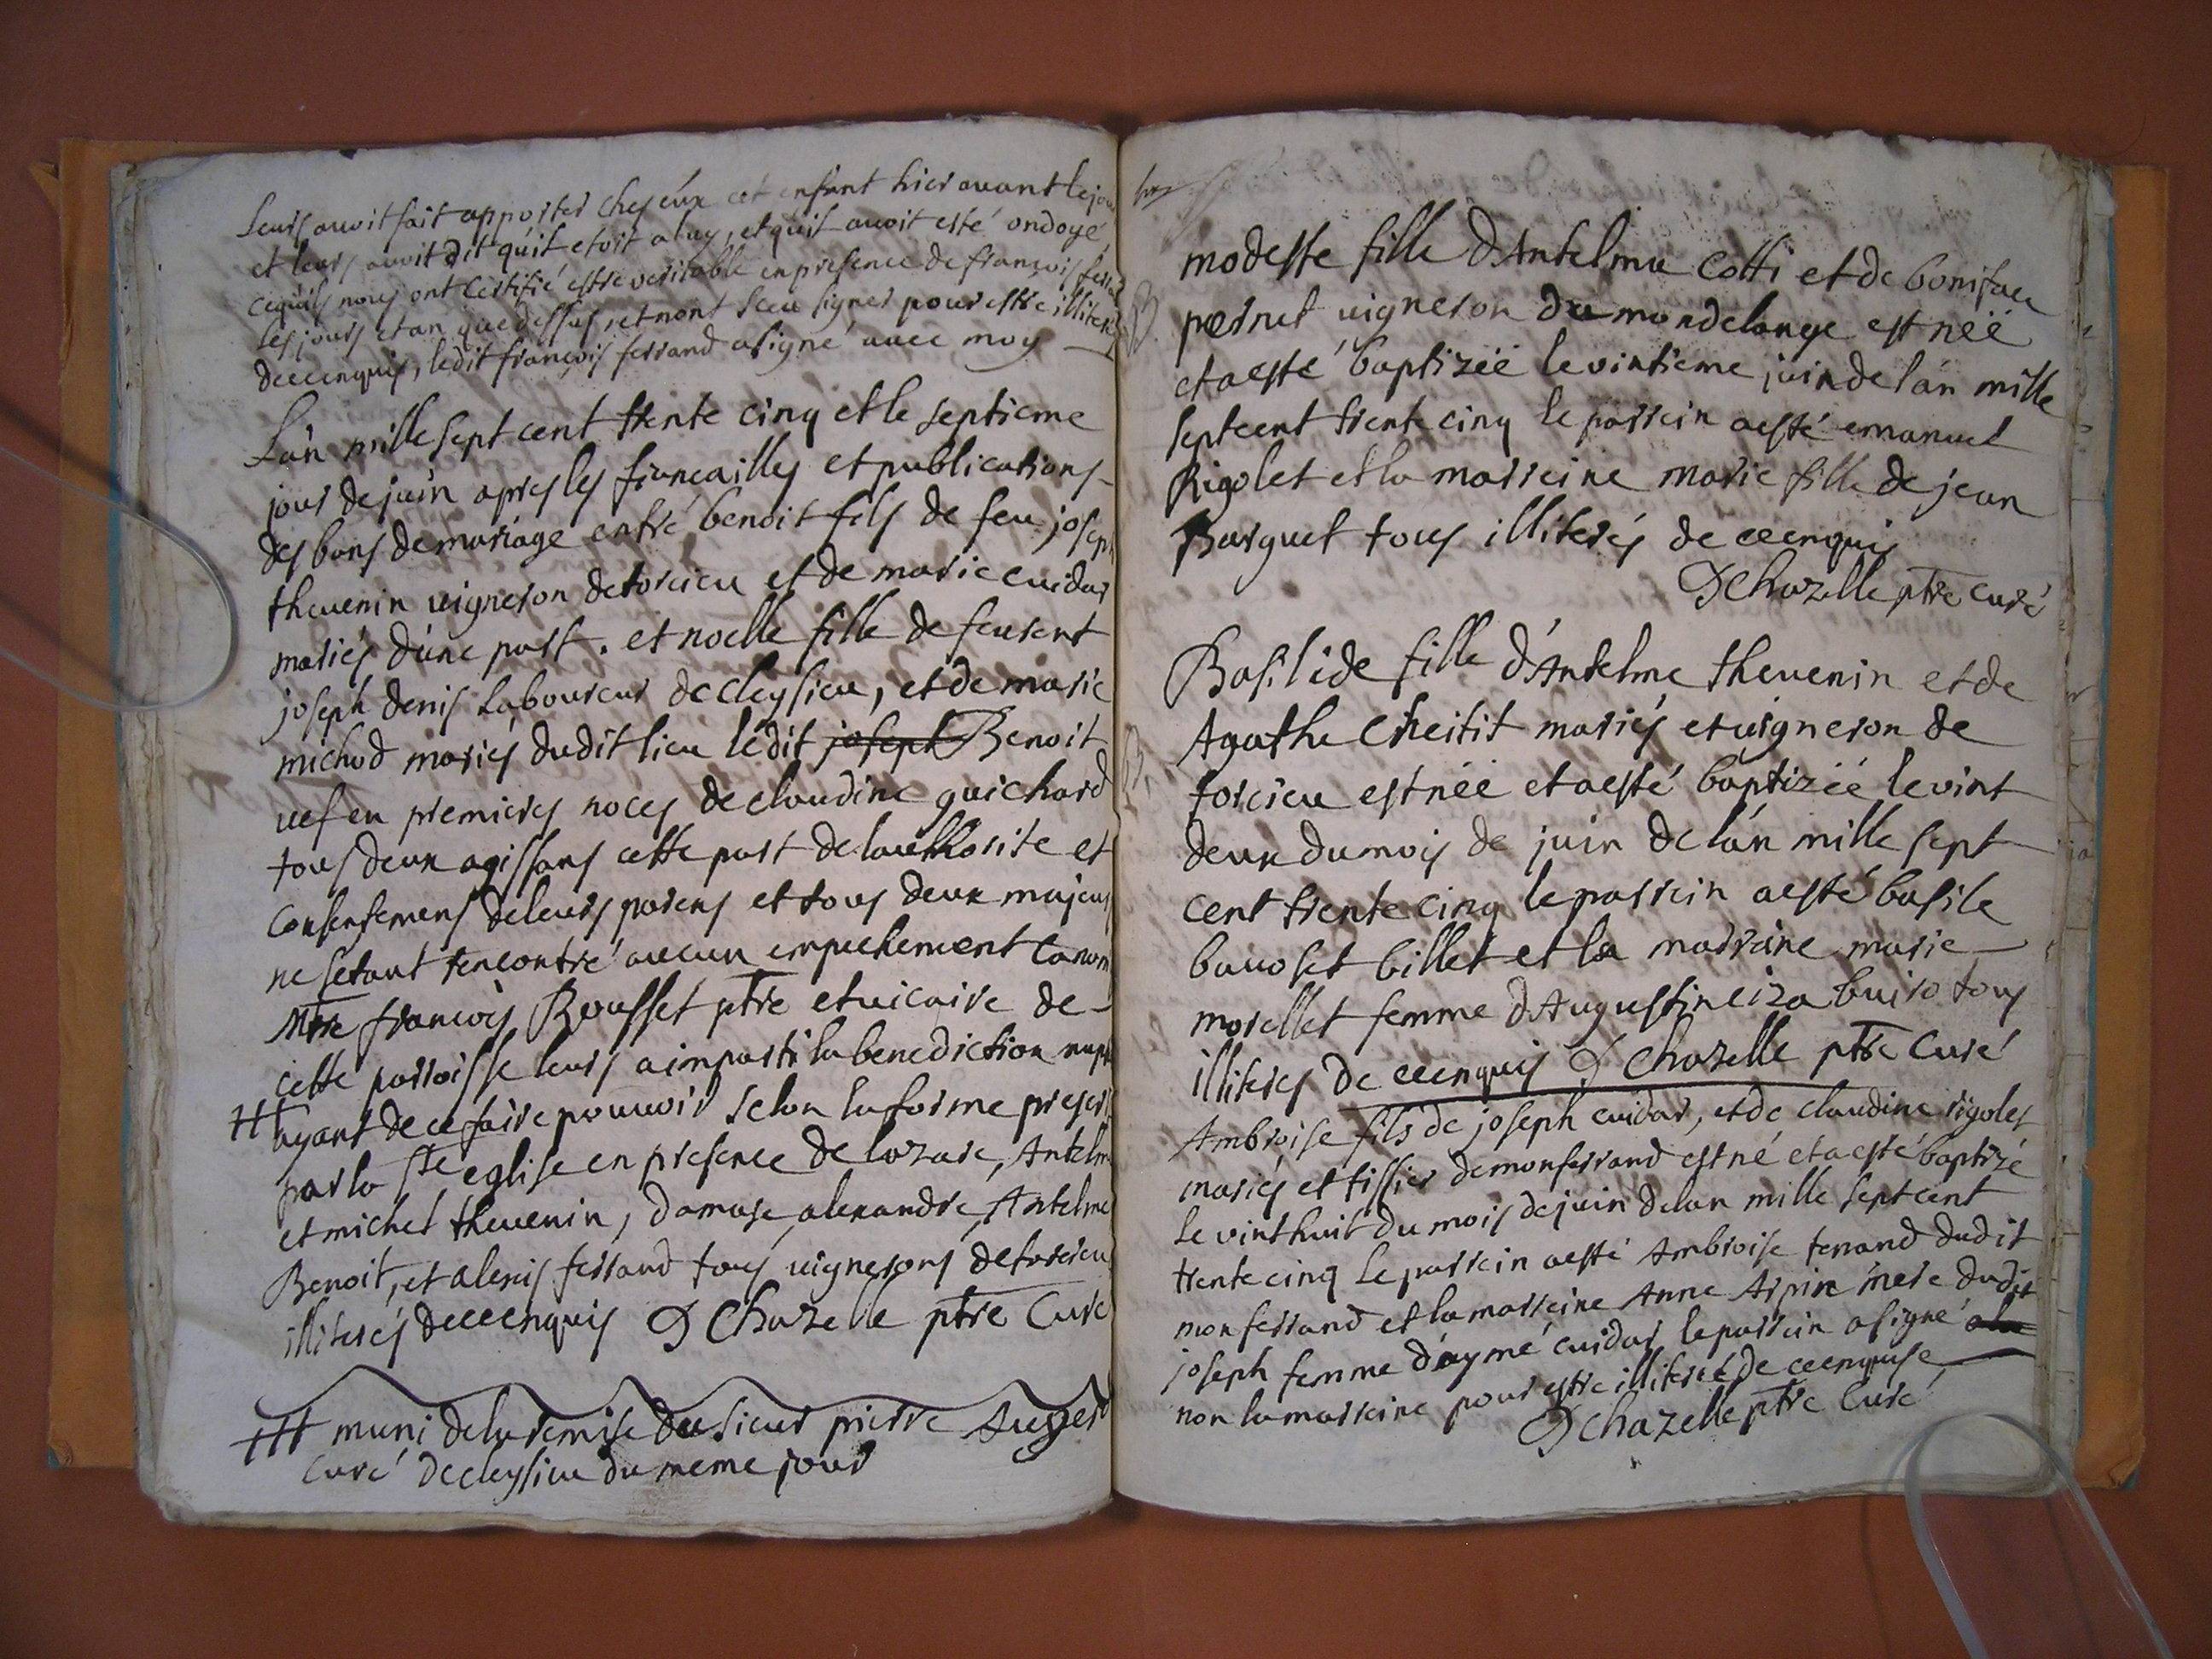 leurs avoit fait apporter chez eux cet enfant hier avant le jour
et leurs avoit dit qu'il etoit a luy, et qu'il avoit esté ondoyé
ce quils nous ont certifié estre veritable en presence de françois
les jours et an que dessus, et n'ont sceu signer pour estre
de ce enquis, ledit françois ferrand a signé avec moy
L'an mille sept cent trente cinq et le septieme
jour de juin apres les fiancailles et publications
des bans de mariage entre benoit fils de feu joseph
thevenin vigneron de torcieu et de marie cuidar
mariés d'une part. et noelle fille de feu
joseph denis laboureur de cleysieu, et de marie
michod mariés dudit lieu ledit joseph Benoit
vef en premieres noces de claudine guichard
tous deux agissans cette part de lauthorite et
consentemens de leurs parens et tous deux majeurs
ne setant rencontré aucun empechement canon
Mre françois Rousset ptre et vicaire de
cette parroisse leurs a imparti la benediction nupt
++ ayant de ce faire pouvoir selon la forme prescri
par la Ste eglise en presence de lazare, Antelme
et michel thevenin, damase, alexandre, Antelme
Benoit, et alexis ferrand tous vignerons de torcieu
illiterés de ce enquis D Chazelle ptre Curé
+++ muni de la remise du sieur pierre Auger
curé de cleysieu du meme jour
modeste fille d'Antelme Cotti et de boniface
pernet vigneron du mondelange est néé
et a esté baptizéé le vintieme juin de l'an mille
sept cent trente cinq le parrein a esté emanuel
Rigolet et la marreine marie fille de jean
Burguet tous illiterés de ce enquis
D Chazelle ptre curé
B.
Basilide fille d'Antelme thevenin et de
Agathe mariés et vigneron de
torcieu est néé et a esté baptizéé le vint
deux du mois de juin de l'an mille sept
cent trente cinq le parrein a esté basile
billet et la marraine marie
morellet femme d'Augustin tous
illiteres de ce enquis D Chazelle ptre Curé
Ambroise fils de joseph cuidar, et de claudine rigolet
mariés et tissier de monferrand est né et a esté baptizé
le vint huit du mois de juin de lan mille sept cent
trente cinq le parrein a esté Ambroise ferrand dudit
monferrand et la marreine Anne Arpin mere dudit
joseph femme d'aymé cuidar, le parrein a signé
non la marreine pour estre illiterée de ce enquise
D Chazelle ptre Curé